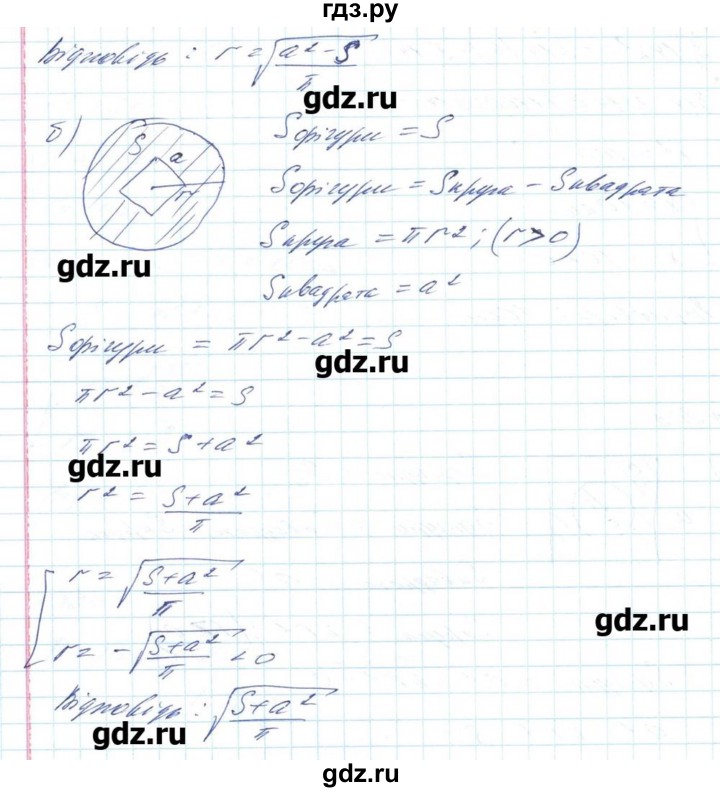 гдз.ру
Відповідь : r = √(a² - S / π)
gdz.ru
б)
S
a
r
Sфігури = S
Sфігури = Sкруга - Sквадрата
Sкруга = πr² ; (r > 0)
gdz.ru
Sквадрата = a²
Sфігури = πr² - a² = S
gdz.ru
πr² - a² = S
πr² = S + a²
gdz.ru
r² = S + a² / π
r = √(S + a² / π)
gdz.ru
r = - √(S + a² / π) < 0
Відповідь : √(S + a² / π)
gdz.ru
gdz.ru